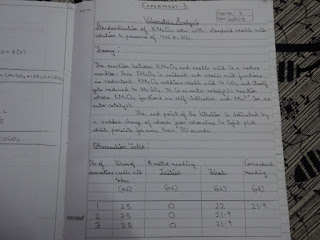 EXPERIMENT-3
Volumetric Analysis
Standardisation of KMnO4 soln with standard oxalic acid
solution in presence of 4N H2SO4.
Theory:
The reaction between KMnO4 and oxalic acid is a redox
reaction. Here KMnO4 is oxidant and oxalic acid functions
as reductant. KMnO4 oxidises oxalic acid to CO2 and itself
gets reduced to MnSO4. It is an auto catalytic reaction
where KMnO4 functions as self indicator and Mn2+ ion as
auto catalyst.
The end point of the titration is indicated by
a sudden change of colour from colourless to light pink
which persists for more than 30 seconds.
Observation Table:
No. of Volume of Burette reading Concordant
oxalic acid Initial Final reading
(mL) (mL) (mL) (mL)
1 25 0 22 21.9
2 25 0 21.9
3 25 0 21.9